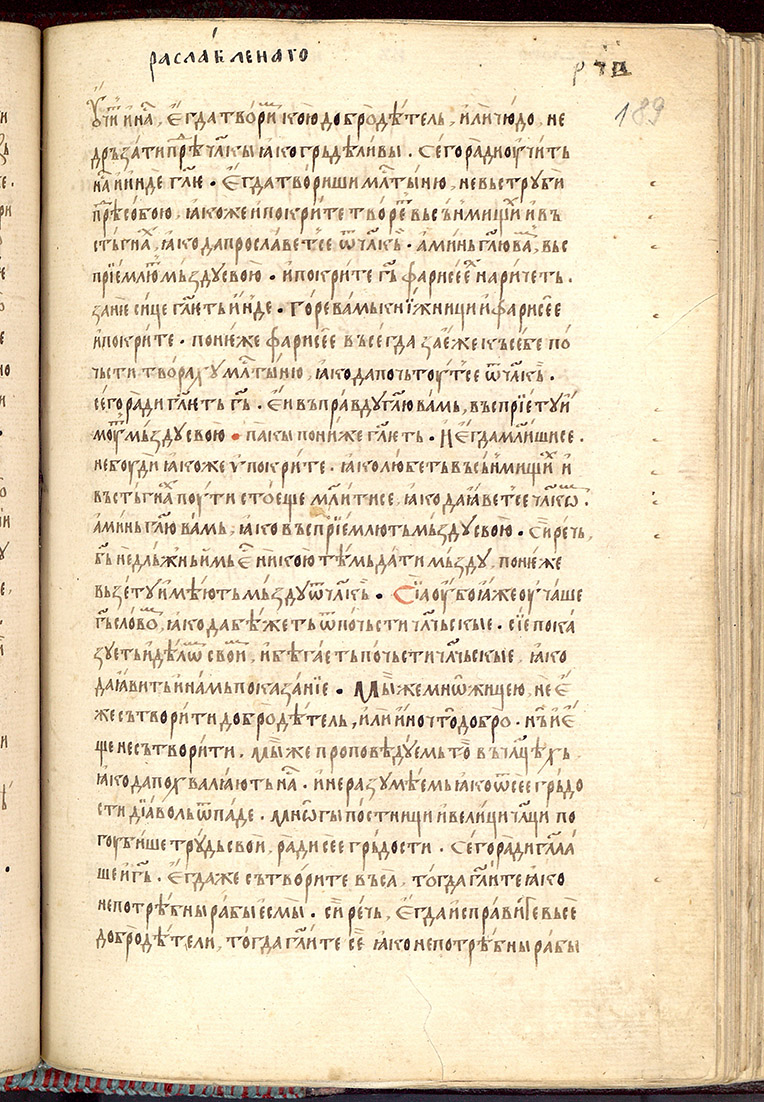 раслабленаго
рчп
189
ѹчи и на҇, егда твори кою добродѣтель, или чюдо, не
дръзати прѣ чл҃кы iако грьделивы. Сего ради ѹчить
на҇ и инде гл҃ѥ. Егда твориши мл҃тыню, не въструби
прѣ собою, iакоже ипокрите творе въ сънмищи и въ
стьгна, iако да прославетсе ѿ чл҃къ. аминь гл҃ю ва, въс
прїемлю мьзду свою. ипокрите гь҃ фарисее наричеть.
зане сице гл҃еть и инде. Горе вамь книжници и фарисее
ипокрите. понеже фарисее въсегда заеже къ себе по
чьсти твораху мл҃тыню, iако да почьтоутсе ѿ чл҃къ.
сего ради гл҃еть гь҃. Еи въправду гл҃ю вамь, въспрїетуи
моу мьзду свою. пакы пониже гл҃еть. И егда мл҃ишисе.
не боуди iакоже ѵпокрите. iако любеть въ сьнмищи и
въ стьгна поути стоеще мл҃итисе, iако да iаветсе чл҃кѡ.
аминь гл҃ю вамь, iако въспрїемлють мьзду свою. Сиречь,
бь҃ не дльжньимь е никою тѣмь дати мьзду, понеже
възету имеють мьзду ѿ чл҃къ. Сїа оубо iаже оучаше
гь҃ слово, iако да бежеть ѿ почьсти чл҃чьскые. сїе пока
зуеть и делѡ свои, и бегаеть почьсти чл҃чьскые, iако
да iавить и намь показанїе. Мы же мнѡжицею, не е
же сътворити добродѣтель, или ино что добро. нь и е
ще не сътворити. мы же проповедуемь то въ чл҃цѣхь
iако да похвалiають на҇. и не разумѣемь iако ѿ сее грьдо
сти дїаволь ѿпаде. мнѡгы постници и велици чл҃ци по
гоубише трудь свои, ради сее грьдости. Сего ради гл҃а
ше и гь҃. Егда же сътворите въса, тогда гл҃ите iако
непотрѣбны рабы есмы. сиречь, егда исправите въсе
добродѣтели, тогда гл҃ите се iако непотрѣбны рабы